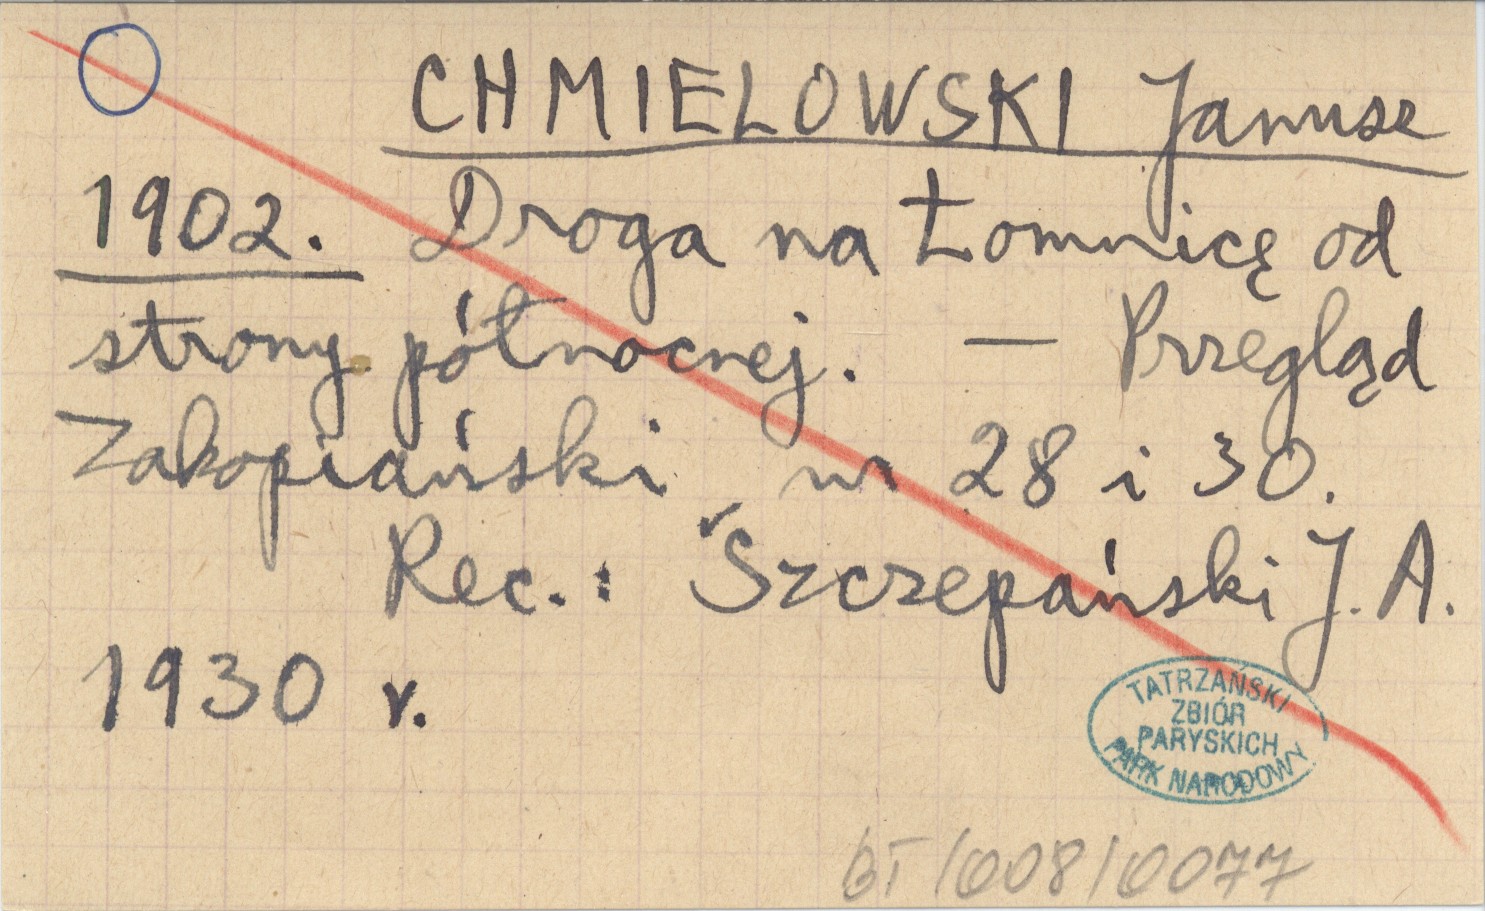 CHMIELOWSKI Janusz
1902. Droga na Łomnicę od
strony północnej. — Przegląd
Zakopiański nr 28 i 30.
Rec.: Szczepański J. A.
1930 r.
TATRZAŃSKI
ZBIÓR
PARYSKICH
PARK NARODOWY
BT/008/0077